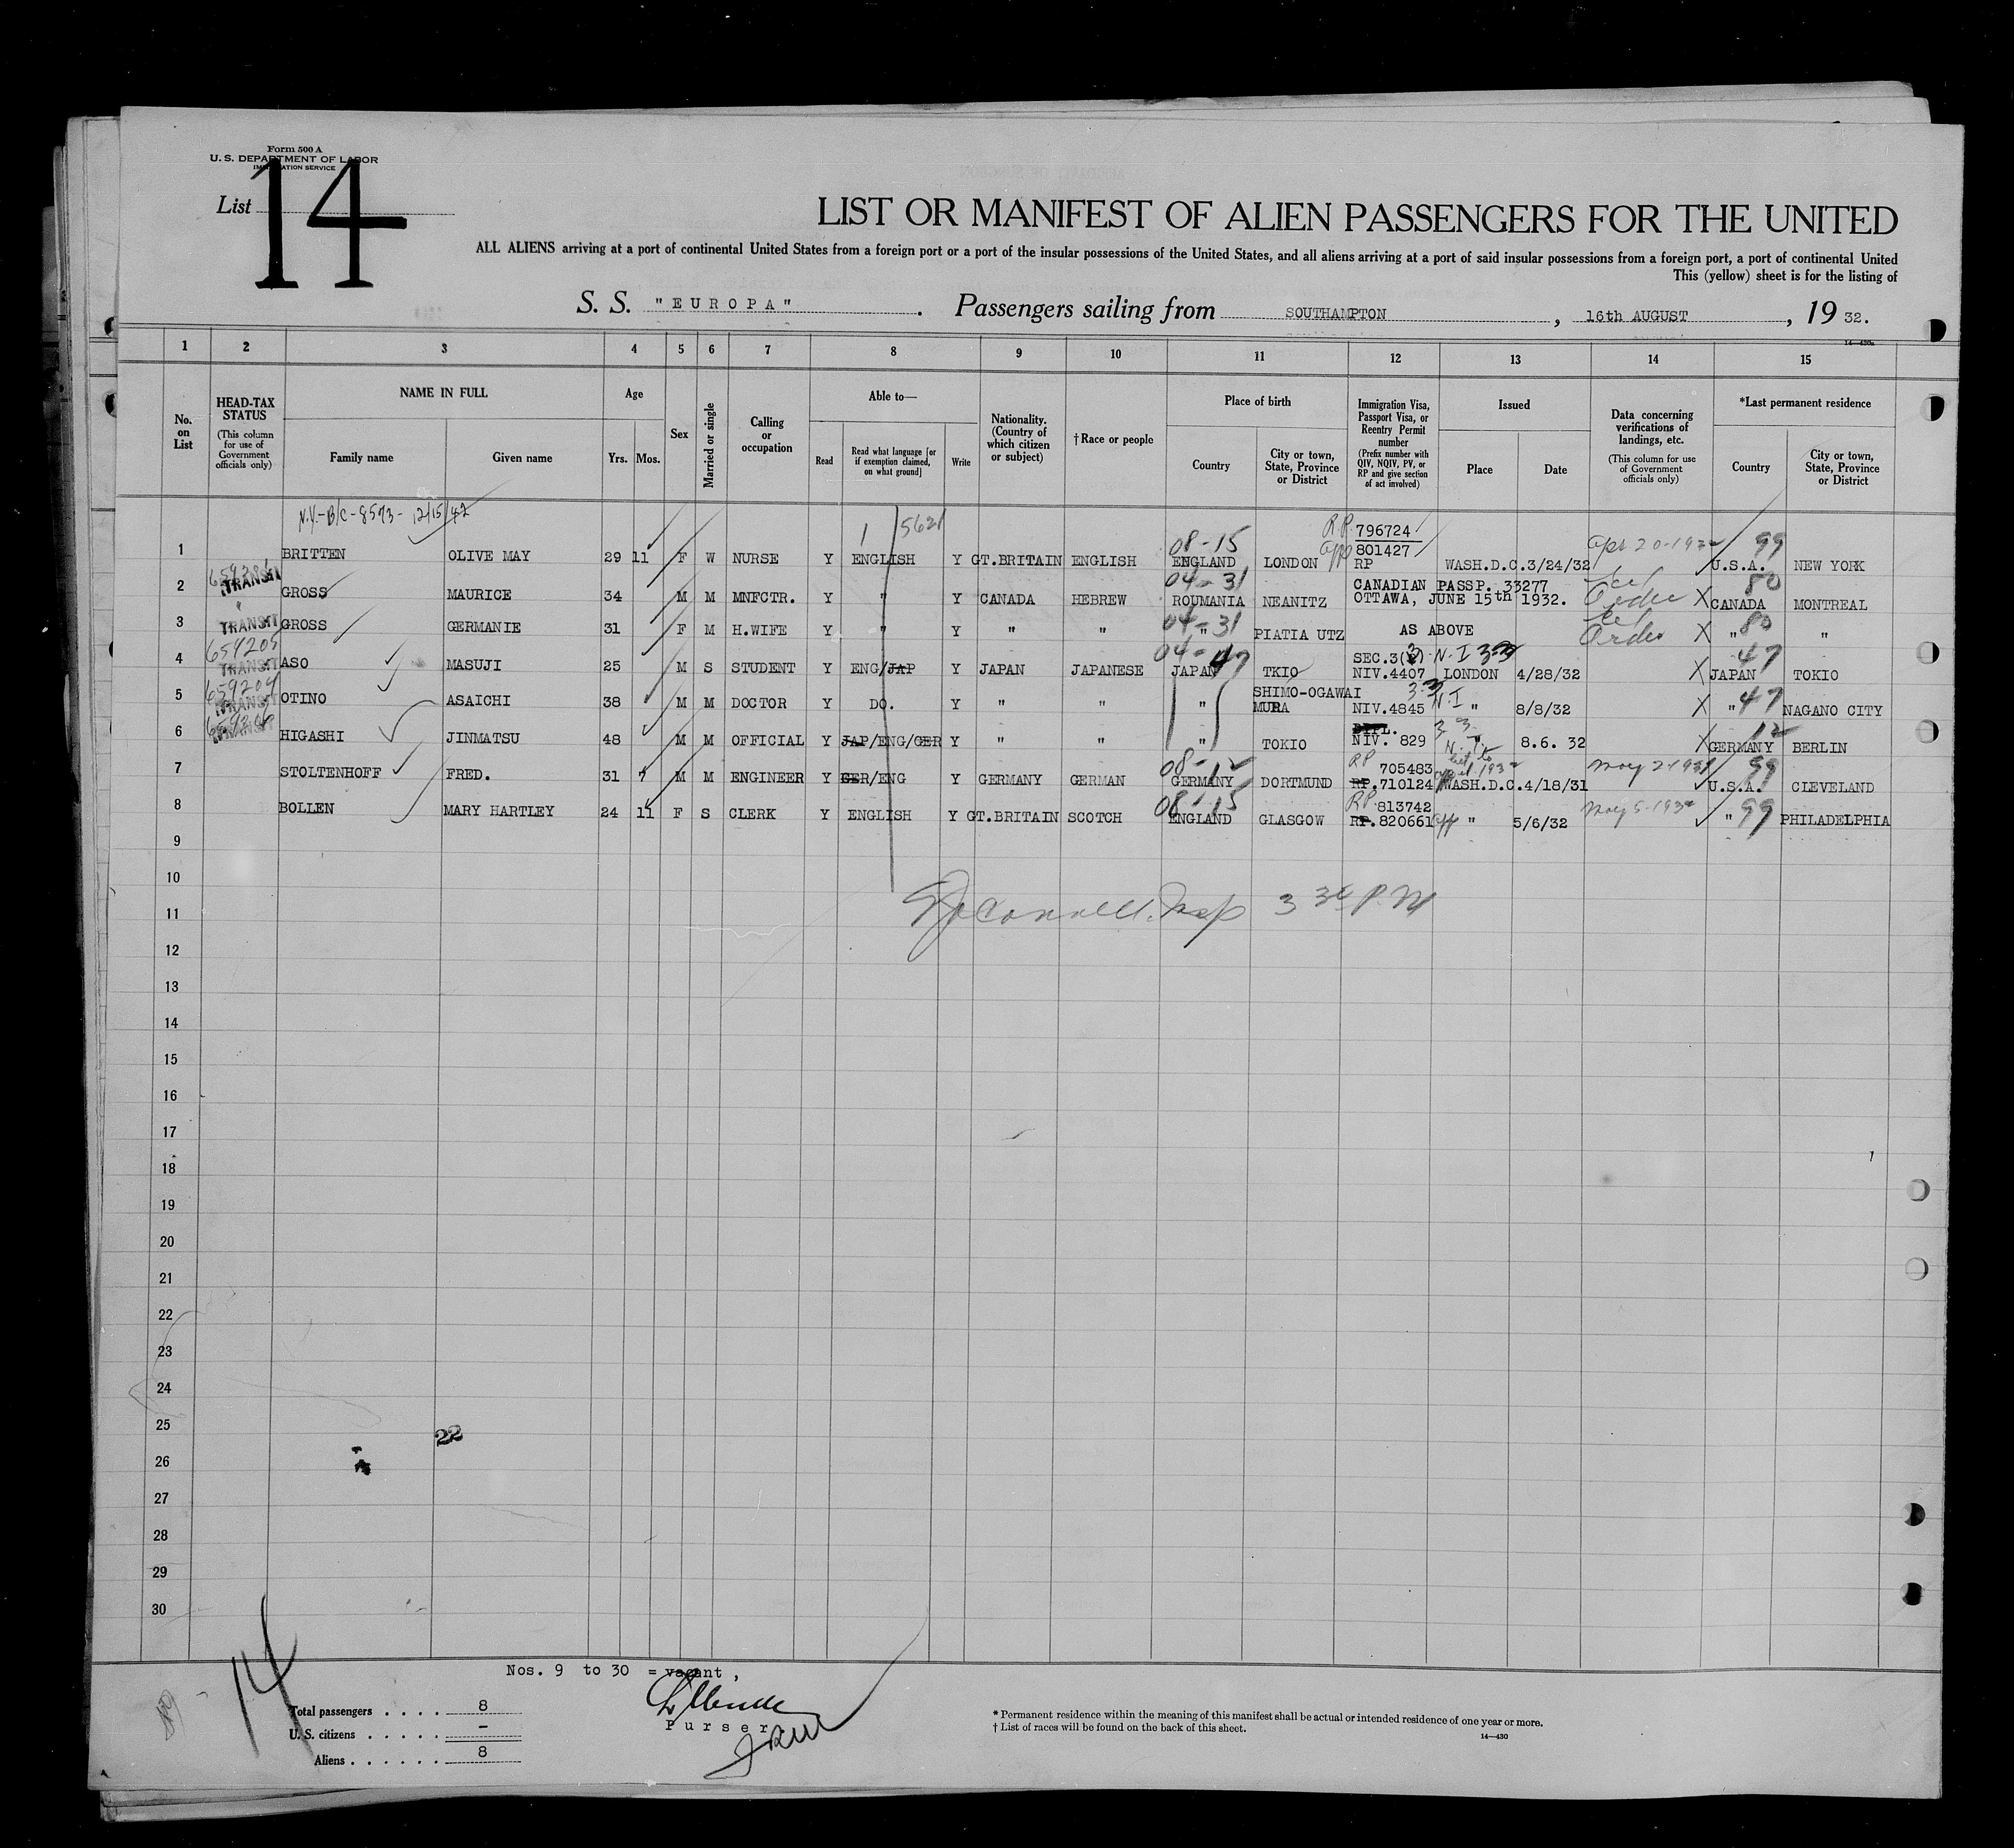 Form 500 A
U. S. DEPARTMENT OF LABOR
IMMIGRATION SERVICE
List 14
LIST OR MANIFEST OF ALIEN PASSENGERS FOR THE UNITED
ALL ALIENS arriving at a port of continental United States from a foreign port or a port of the insular possessions of the United States, and all aliens arriving at a port of said insular possessions from a foreign port, a port of continental United
This (yellow) sheet is for the listing of
S. S. "EUROPA". Passengers sailing from SOUTHAMPTON, 16th AUGUST, 19 32.
14—430a
1 2 3 4 5 6 7 8 9 10 11 12 13 14 15
No. on List
HEAD-TAX STATUS
(This column for use of Government officials only)
NAME IN FULL
Family name
Given name
Age
Yrs. Mos.
Sex
Married or single
Calling or occupation
Able to—
Read
Read what language [or if exemption claimed, on what ground]
Write
Nationality. (Country of which citizen or subject)
†Race or people
Place of birth
Country
City or town, State, Province or District
Immigration Visa, Passport Visa, or Reentry Permit number
(Prefix number with QIV, NQIV, PV, or RP and give section of act involved)
Issued
Place
Date
Data concerning verifications of landings, etc.
(This column for use of Government officials only)
*Last permanent residence
Country
City or town, State, Province or District
N.Y.-B/C-8573- 12/15/42
1 5621
08-15 R.P. 796724 Apr 20-1932 99
1 BRITTEN OLIVE MAY 29 11 F W NURSE Y ENGLISH Y GT.BRITAIN ENGLISH ENGLAND LONDON app 801427 RP WASH.D.C. 3/24/32 U.S.A. NEW YORK
TRANSIT 04-31 80
2 GROSS MAURICE 34 M M MNFCTR. Y " Y CANADA HEBREW ROUMANIA NEANITZ CANADIAN PASSP. 33277 OTTAWA, JUNE 15th 1932. X CANADA MONTREAL
TRANSIT 04-31 80
3 GROSS GERMANIE 31 F M H.WIFE Y " Y " " " PIATIA UTZ AS ABOVE X " "
659205 TRANSIT 04-47 47
4 ASO MASUJI 25 M S STUDENT Y ENG/JAP Y JAPAN JAPANESE JAPAN TKIO SEC.3(2) N.I 33 NIV.4407 LONDON 4/28/32 X JAPAN TOKIO
659204 TRANSIT 47
5 OTINO ASAICHI 38 M M DOCTOR Y DO. Y " " " SHIMO-OGAWAI MURA 33 N.I NIV.4845 " 8/8/32 X " NAGANO CITY
TRANSIT 12
6 HIGASHI JINMATSU 48 M M OFFICIAL Y JAP/ENG/GER Y " " " TOKIO DIPL. NIV. 829 " 8.6. 32 X GERMANY BERLIN
08-12 RP 705483 May 2-1931 99
7 STOLTENHOFF FRED. 31 7 M M ENGINEER Y GER/ENG Y GERMANY GERMAN GERMANY DORTMUND RP.710124 WASH.D.C. 4/18/31 U.S.A. CLEVELAND
08-15 RP 813742 May 5-1932 99
8 BOLLEN MARY HARTLEY 24 11 F S CLERK Y ENGLISH Y GT.BRITAIN SCOTCH ENGLAND GLASGOW RP.820661 app " 5/6/32 " PHILADELPHIA
9
10
11 3 30 P.M
12
13
14
15
16
17
18
19
20
21
22
23
24
25 22
26
27
28
29
30
Nos. 9 to 30 = vacant,
14
Total passengers . . . . 8
U. S. citizens . . . . . –
Aliens . . . . . . 8
Purser
* Permanent residence within the meaning of this manifest shall be actual or intended residence of one year or more.
† List of races will be found on the back of this sheet.
14—430